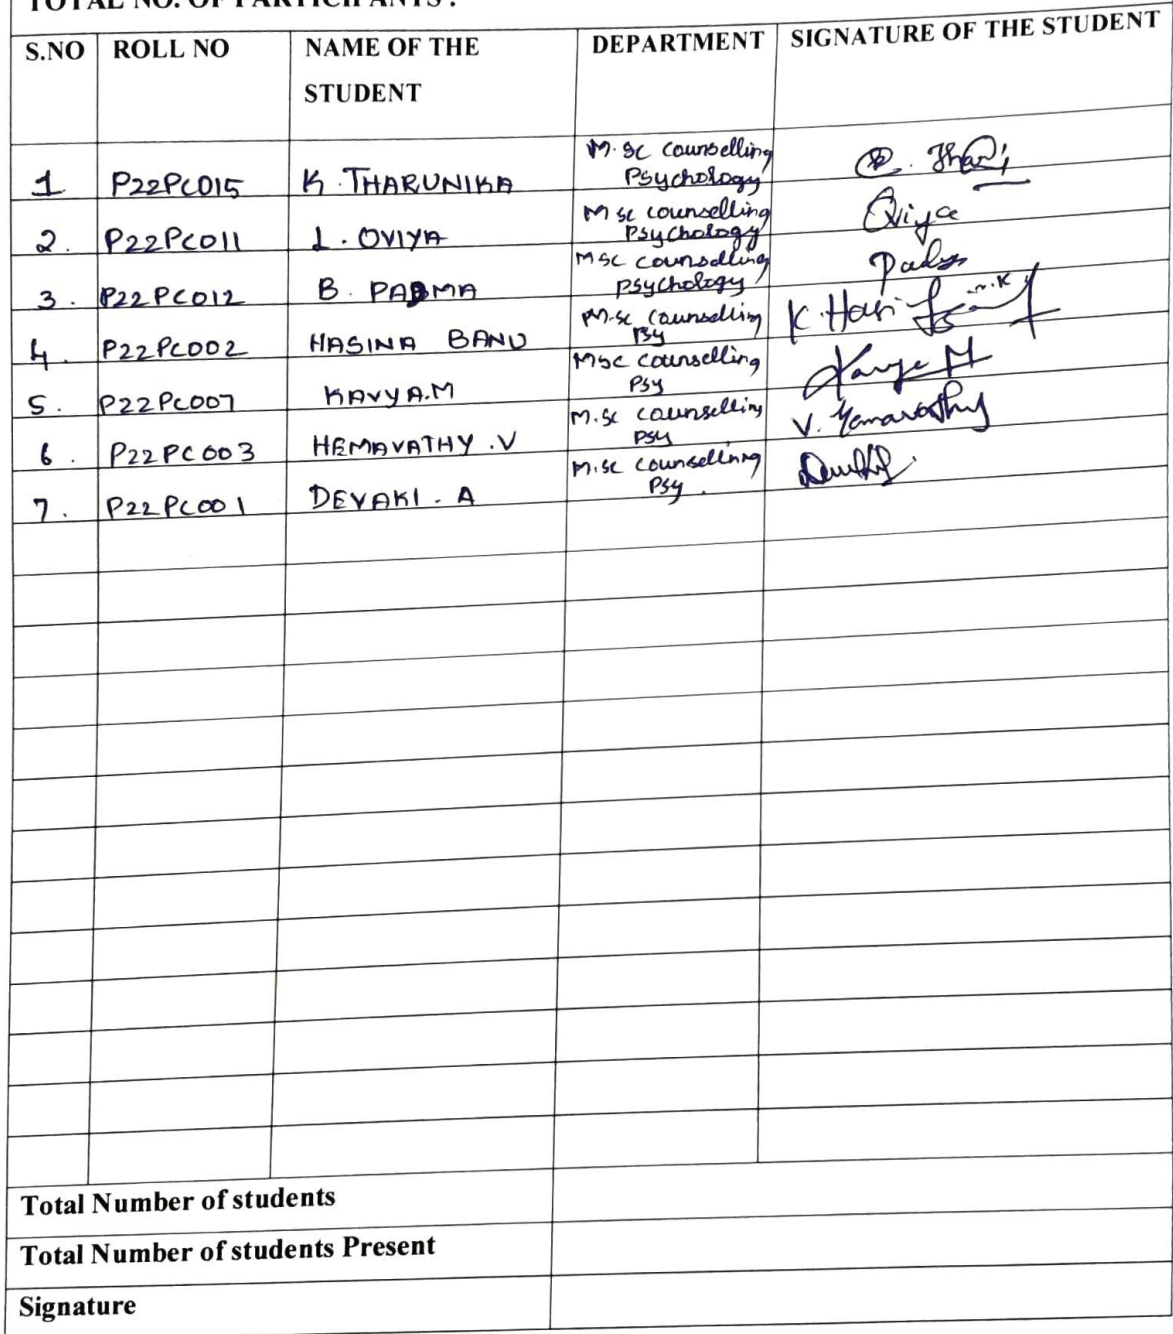 TOTAL NO. OF PARTICIPANTS :
S.NO ROLL NO NAME OF THE STUDENT DEPARTMENT SIGNATURE OF THE STUDENT
1 P22PC015 K. THARUNIKA M.Sc counselling Psychology
2. P22PC011 L. OVIYA M Sc counselling Psychology Oviya
3. P22PC012 B. PADMA MSc counselling psychology
4. P22PC002 HASINA BANU M.Sc counselling Psy
5. P22PC007 KAVYA.M MSc counselling Psy
6. P22PC003 HEMAVATHY .V M.Sc counselling Psy
7. P22PC001 DEVAKI. A M.Sc counselling Psy.
Total Number of students
Total Number of students Present
Signature